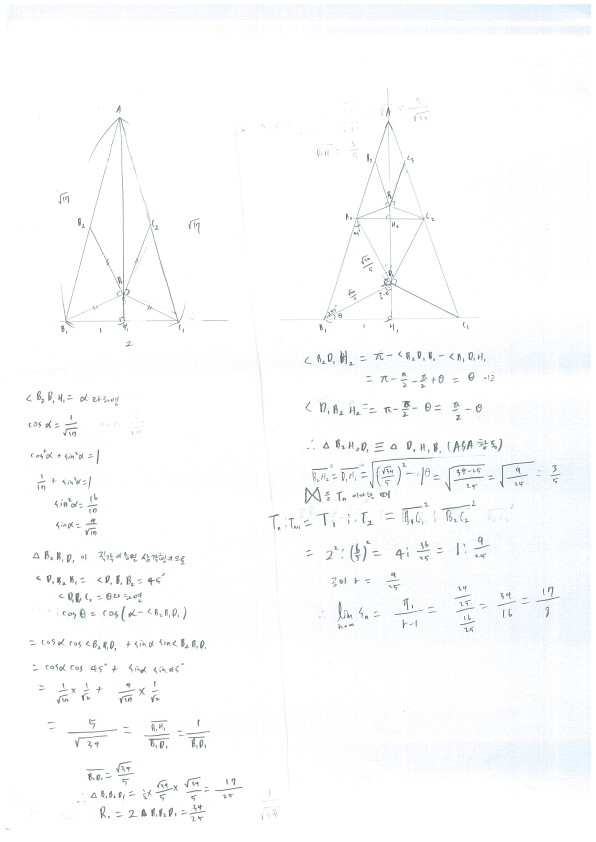 A
√17
√17
B₂
C₂
B₁
1
H₁
C₁
2
A
B₃
C₃
B₂
H₂
C₂
√34/5
√34/5
D₁
B₁
θ
1
H₁
C₁
< B₂B₁H₁ = α 라하면
cosα = 1/√17
cos²α + sin²α = 1
1/17 + sin²α = 1
sin²α = 16/17
sinα = 4/√17
△ B₂B₁D₁ 이 직각이등변 삼각형이므로
< D₁B₂B₁ = < D₁B₁B₂ = 45°
< D₁B₁C₁ = θ라하면
cosθ = cos(α - <B₂B₁D₁)
= cosα cos<B₂B₁D₁ + sinα sin<B₂B₁D₁
= cosα cos 45° + sinα sin 45°
= 1/√17 × 1/√2 + 4/√17 × 1/√2
= 5/√34 = B₁H₁/B₁D₁ = 1/B₁D₁
B₁D₁ = √34/5
∴ △B₁B₂D₁ = 1/2 × √34/5 × √34/5 = 17/25
R₁ = 2△B₁B₂D₁ = 34/25
< B₂D₁H₂ = π - <B₂D₁B₁ - <B₁D₁H₁
= π - π/2 - π/2 + θ = θ
< D₁B₂H₂ = π - π/2 - θ = π/2 - θ
∴ △B₂H₂D₁ ≡ △D₁H₁B₁ (ASA 합동)
B₂H₂ = D₁H₁ = √((√34/5)² - 1) = √((34-25)/25) = √(9/25) = 3/5
을 Tₙ 이라 할 때
Tₙ : Tₙ₊₁ = T₁ : T₂ = B₁C₁² : B₂C₂²
= 2² : (6/5)² = 4 : 36/25 = 1 : 9/25
공비 r = 9/25
∴ lim n→∞ Sₙ = T₁/(r-1) = (34/25)/(16/25) = 34/16 = 17/8